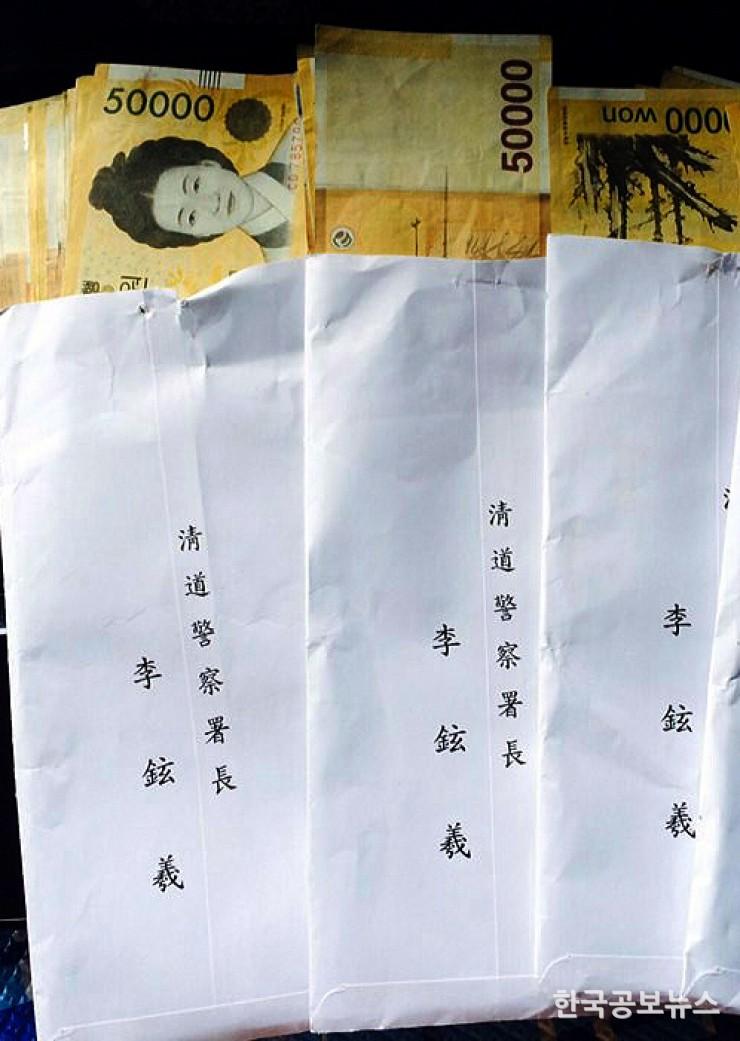 50000
50000
won
淸道警察署長
李鉉羲
淸道警察署長
李鉉羲
李鉉羲
한국공보뉴스